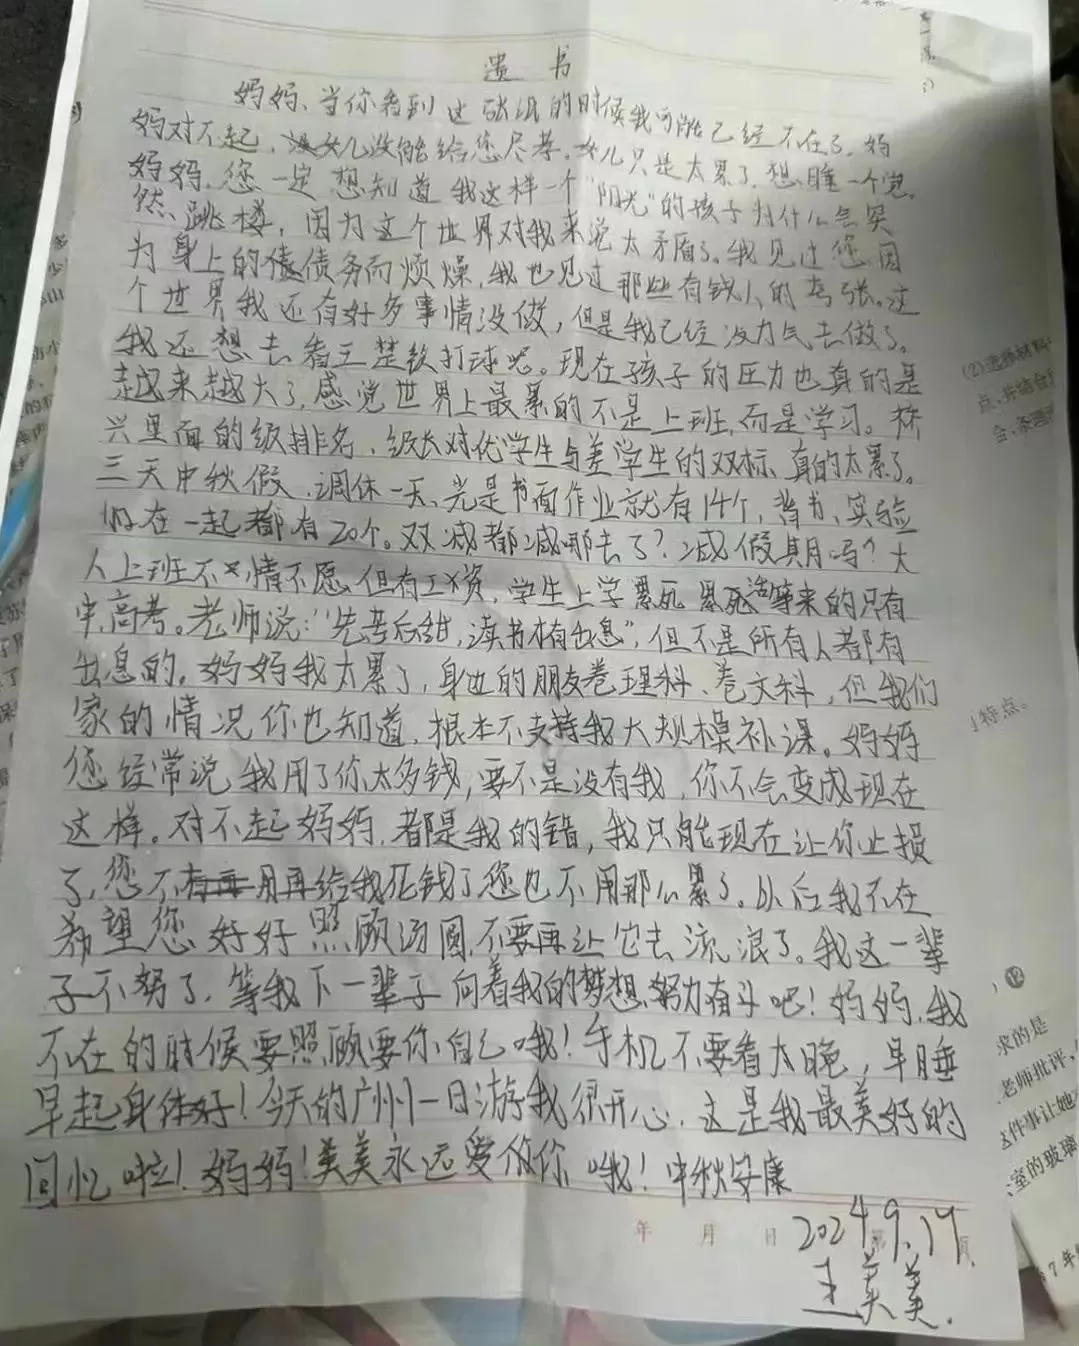 遗书
妈妈、当你看到这张纸的时候我可能已经不在了,妈
妈对不起,女儿没能给您尽孝,女儿只是太累了,想睡一个觉。
妈妈,您一定想知道我这样一个“阳光”的孩子为什么会突
然、跳楼,因为这个世界对我来说太矛盾了。我见过您因
为身上的债务而烦燥,我也见过那些有钱人的夸张。这
个世界我还有好多事情没做,但是我已经没力气去做了。
我还想去看王楚钦打球呢。现在孩子的压力也真的是
越来越大了,感觉世界上最累的不是上班,而是学习。
兴里面的级排名、级长对优学生与差学生的双标、真的太累了。
三天中秋假,调休一天,光是书面作业就有14个,背书、实验
在一起都有20个。双减都减哪去了?减假期吗?大
人上班不情不愿,但有工资,学生上学累死累死等来的只有
中,高考。老师说:“先苦后甜,读书才有出息”,但不是所有人都有
出息的。妈妈我太累了,身边的朋友卷理科、卷文科,但我们
家的情况你也知道,根本不支持我大规模补课。妈妈
您经常说我用了你太多钱,要不是没有我,你不会变成现在
这样。对不起妈妈,都是我的错,我只能现在让你止损
了,您不用再给我花钱了您也不用那么累了。以后我不在
希望您好好照顾汤圆,不要再让它去流浪了。我这一辈
子不努了,等我下一辈子向着我的梦想努力奋斗吧!妈妈,我
不在的时候要照顾要你自己哦!手机不要看太晚,早睡
早起身体好!今天的广州一日游我很开心,这是我最美好的
回忆啦!妈妈!美美永远爱你 哦!中秋安康
年 月 日 2024.9.17
王美美.
(2)选择材料
点,并结合
特点。
求的是
老师批评,
这件事让她
室的玻璃